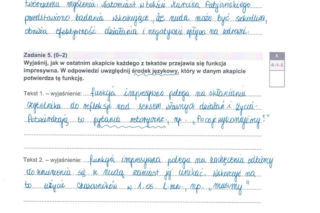 tworzenia myślenia. Natomiast w tekście Mariusza Fabijańskiego
przedstawiono badania wskazujące, że nuda może być szkodliwa,
obniża efektywność działania i negatywnie wpływa na zdrowie.
Zadanie 5. (0–2)
Wyjaśnij, jak w ostatnim akapicie każdego z tekstów przejawia się funkcja
impresywna. W odpowiedzi uwzględnij środek językowy, który w danym akapicie
potwierdza tę funkcję.
Tekst 1. – wyjaśnienie: funkcja impresywna polega na skłanianiu
czytelnika do refleksji nad sensem własnych działań i życia.
Potwierdzają to pytania retoryczne, np.
Tekst 2. – wyjaśnienie: funkcja impresywna polega na zachęceniu odbiorcy
do zmierzenia się z nudą zamiast jej unikać. Wskazuje na
to użycie czasowników w 1. os. l. mn., np. „musimy”